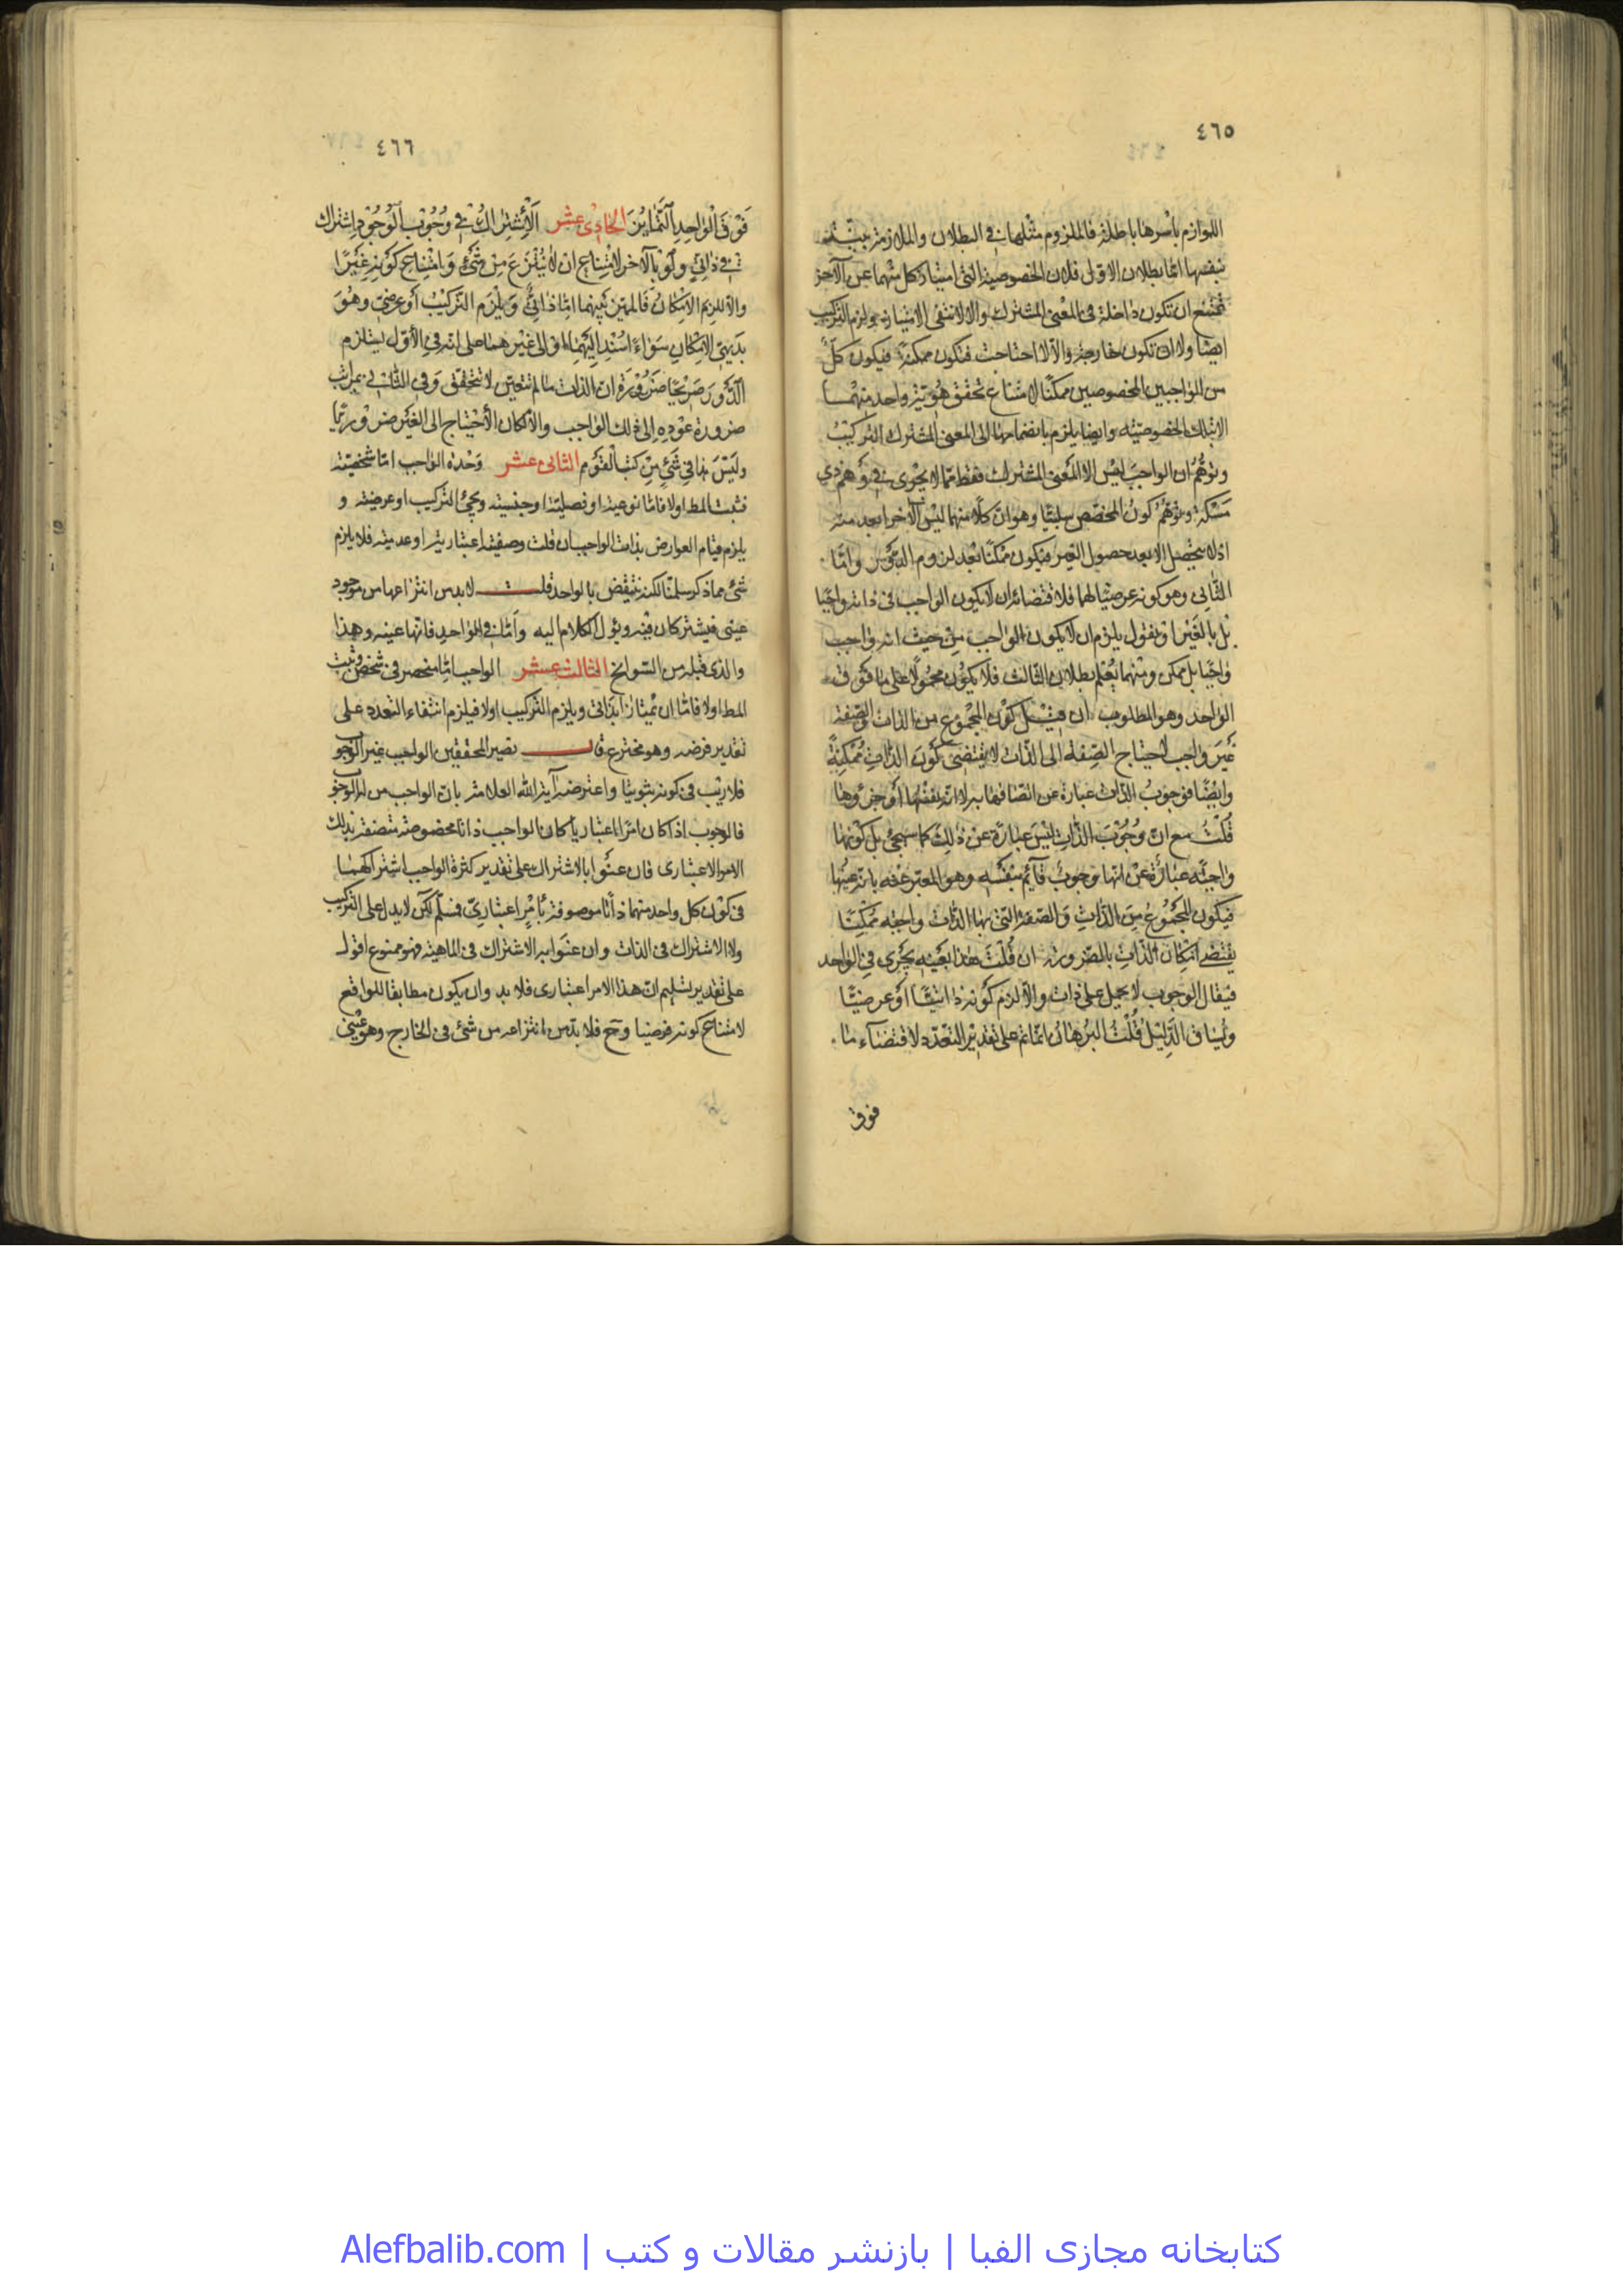 ٤٦٥
اللوازم بأسرها باطلة فالملزوم مثلها في البطلان والملازمة بينة
بنفسها اما بطلان الاول فلان الخصوصية التي امتياز كل منهما عن الآخر
تمتنع ان تكون داخلة في المعنى المشترك والا لانتفى الامتياز ولزم التركيب
ايضا ولا ان تكون خارجة والا لاحتاجت فتكون ممكنة فيكون كل
من الواجبين المخصوصين ممكنا لامتناع تحقق هوية واحد منهما
الا بتلك الخصوصية وايضا يلزم بانضمامها الى المعنى المشترك التركيب
وتوهم ان الواجب ليس الا المعنى المشترك فقط مما لا يجرى في وهم ذي
مسكة وتوهم كون المخصص سلبيا وهو ان كلا منهما ليس الآخر ابعد منه
اذ لا يتحصل الا بعد حصول الغير فيكون ممكنا بعد لزوم الدور واما
الثاني وهو كونه عرضيا لهما فلاقتضائه ان لا يكون الواجب في ذاته واجبا
بل بالغير او نقول يلزم ان لا يكون الواجب من حيث انه واجب
واجبا بل ممكن ومنهما يعلم بطلان الثالث فلا يكون محمولا على ما فوق
الواحد وهو المطلوب ان قيل كون المجموع من الذات والصفة
غير واجب لاحتياج الصفة الى الذات لا يقتضى كون الذات ممكنة
وايضا فوجوب الذات عبارة عن اتصافها به لا انه نفسها او جزؤها
قلت مع ان وجوب الذات ليس عبارة عن ذلك كما سيجئ بل كونها
واجبة عبارة عن انها وجوب قائم بنفسه وهو المعبر عنه بانه عينها
فيكون المجموع من الذات والصفة التي بها الذات واجبة ممكنا
يقتضي امكان الذات بالضرورة ان قلت هذا بعينه يجرى في الواحد
فيقال الوجوب لا يحمل على ذات والا لزم كونه ذاتيا او عرضيا
ويساق الدليل قلت البرهان انما تم على تقدير التعدد لاقتضاء ما
فوق
٤٦٦
فوق الواحد التمايز الحادي عشر الاشتراك في وجوب الوجود اشتراك
في ذاتي ولو بالآخر لامتناع ان لا ينتزع من شئ وامتناع كونه غيرا
والا لزم الامكان فالمميز بينهما اما ذاتي ويلزم التركيب او عرضي وهو
بديهي الامكان سواء اسند اليهما او الى غيرهما على انه في الأول يستلزم
الدور صريحا ضرورة ان الذات ما لم تتعين لا تتحقق وفي الثاني بمراتب
ضرورة عوده الى ذلك الواجب والا لكان الاحتياج الى الغير ضروريا
وليس هذا في شئ من كتب القوم الثاني عشر وحدة الواجب اما شخصية
فثبت المط اولا فاما نوعية او فصلية او جنسية ويجئ التركيب او عرضية و
يلزم قيام العوارض بذات الواجب ان قلت وصفية اعتبارية او عدمية فلا يلزم
شئ مما ذكر سلمنا لكنه ينتقض بالواحد قلت لابد من انتزاعها من موجود
عيني فيشتركان فيه ويؤل الكلام اليه واما في الواحد فانها عينه وهذا
والذي قبله من السوانح الثالث عشر الواجب اما منحصر في شخص وثبت
المط اولا فاما ان يمتاز بذاتي ويلزم التركيب اولا فيلزم انتفاء التعدد على
تقدير فرضه وهو مخترع قال نصير المحققين الواجب غير الوجوب
فلا ريب في كونه ثبوتيا واعترضه آية الله العلامة بان الواجب من له الوجوب
فالوجوب اذا كان امرا اعتباريا كان الواجب ذاتا مخصوصة متصفة بذلك
الامر الاعتباري فان عنوا بالاشتراك على تقدير كثرة الواجب اشتراكهما
في كون كل واحد منهما ذاتا موصوفة بأمر اعتباري فمسلم لكن لا يدل على التركيب
ولا الاشتراك في الذات وان عنوا به الاشتراك في الماهية فهو ممنوع اقول
على تقدير تسليم ان هذا الامر اعتباري فلا بد وان يكون مطابقا للواقع
لامتناع كونه فرضيا وح فلا بد من انتزاعه من شئ في الخارج وهو عيني
کتابخانه مجازی الفبا | بازنشر مقالات و کتب | Alefbalib.com